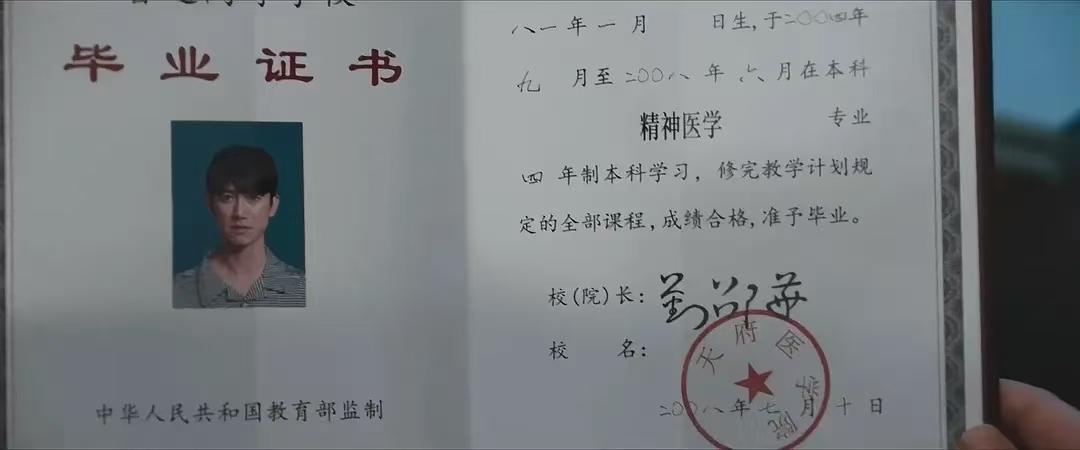 毕业证书
中华人民共和国教育部监制
八一年一月 日生,于二〇〇四年
九 月至二〇〇八年 六月在本科
精神医学 专业
四 年制本科学习，修完教学计划规
定的全部课程,成绩合格,准予毕业。
校(院)长:
校 名:
天府医学院
二〇〇八年七月十日